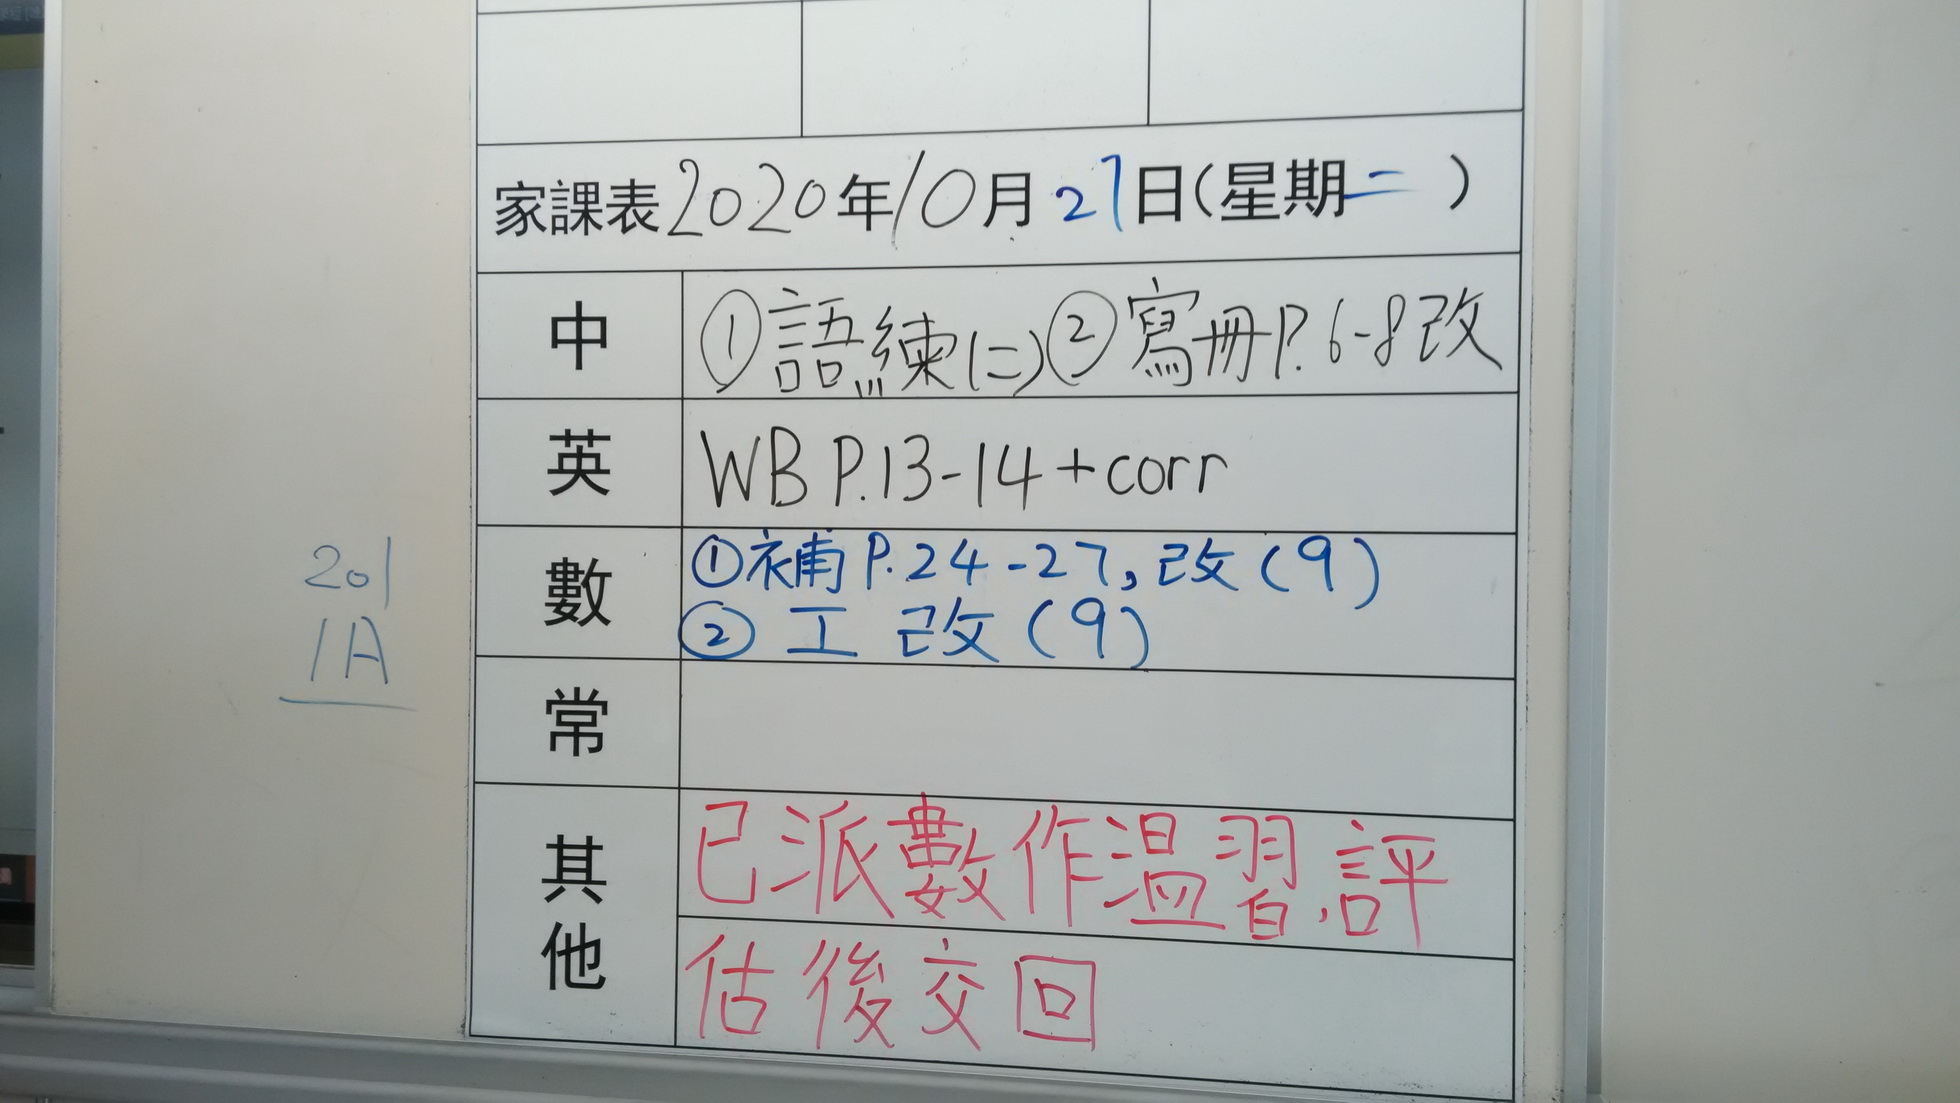 家課表2020年10月27日(星期二)
中 ①語練(二)②寫冊P.6-8改
英 WB P.13-14+corr
數 ①補P.24-27,改(9)
②工 改(9)
常
其他 已派數作溫習,評
估後交回
201
1A